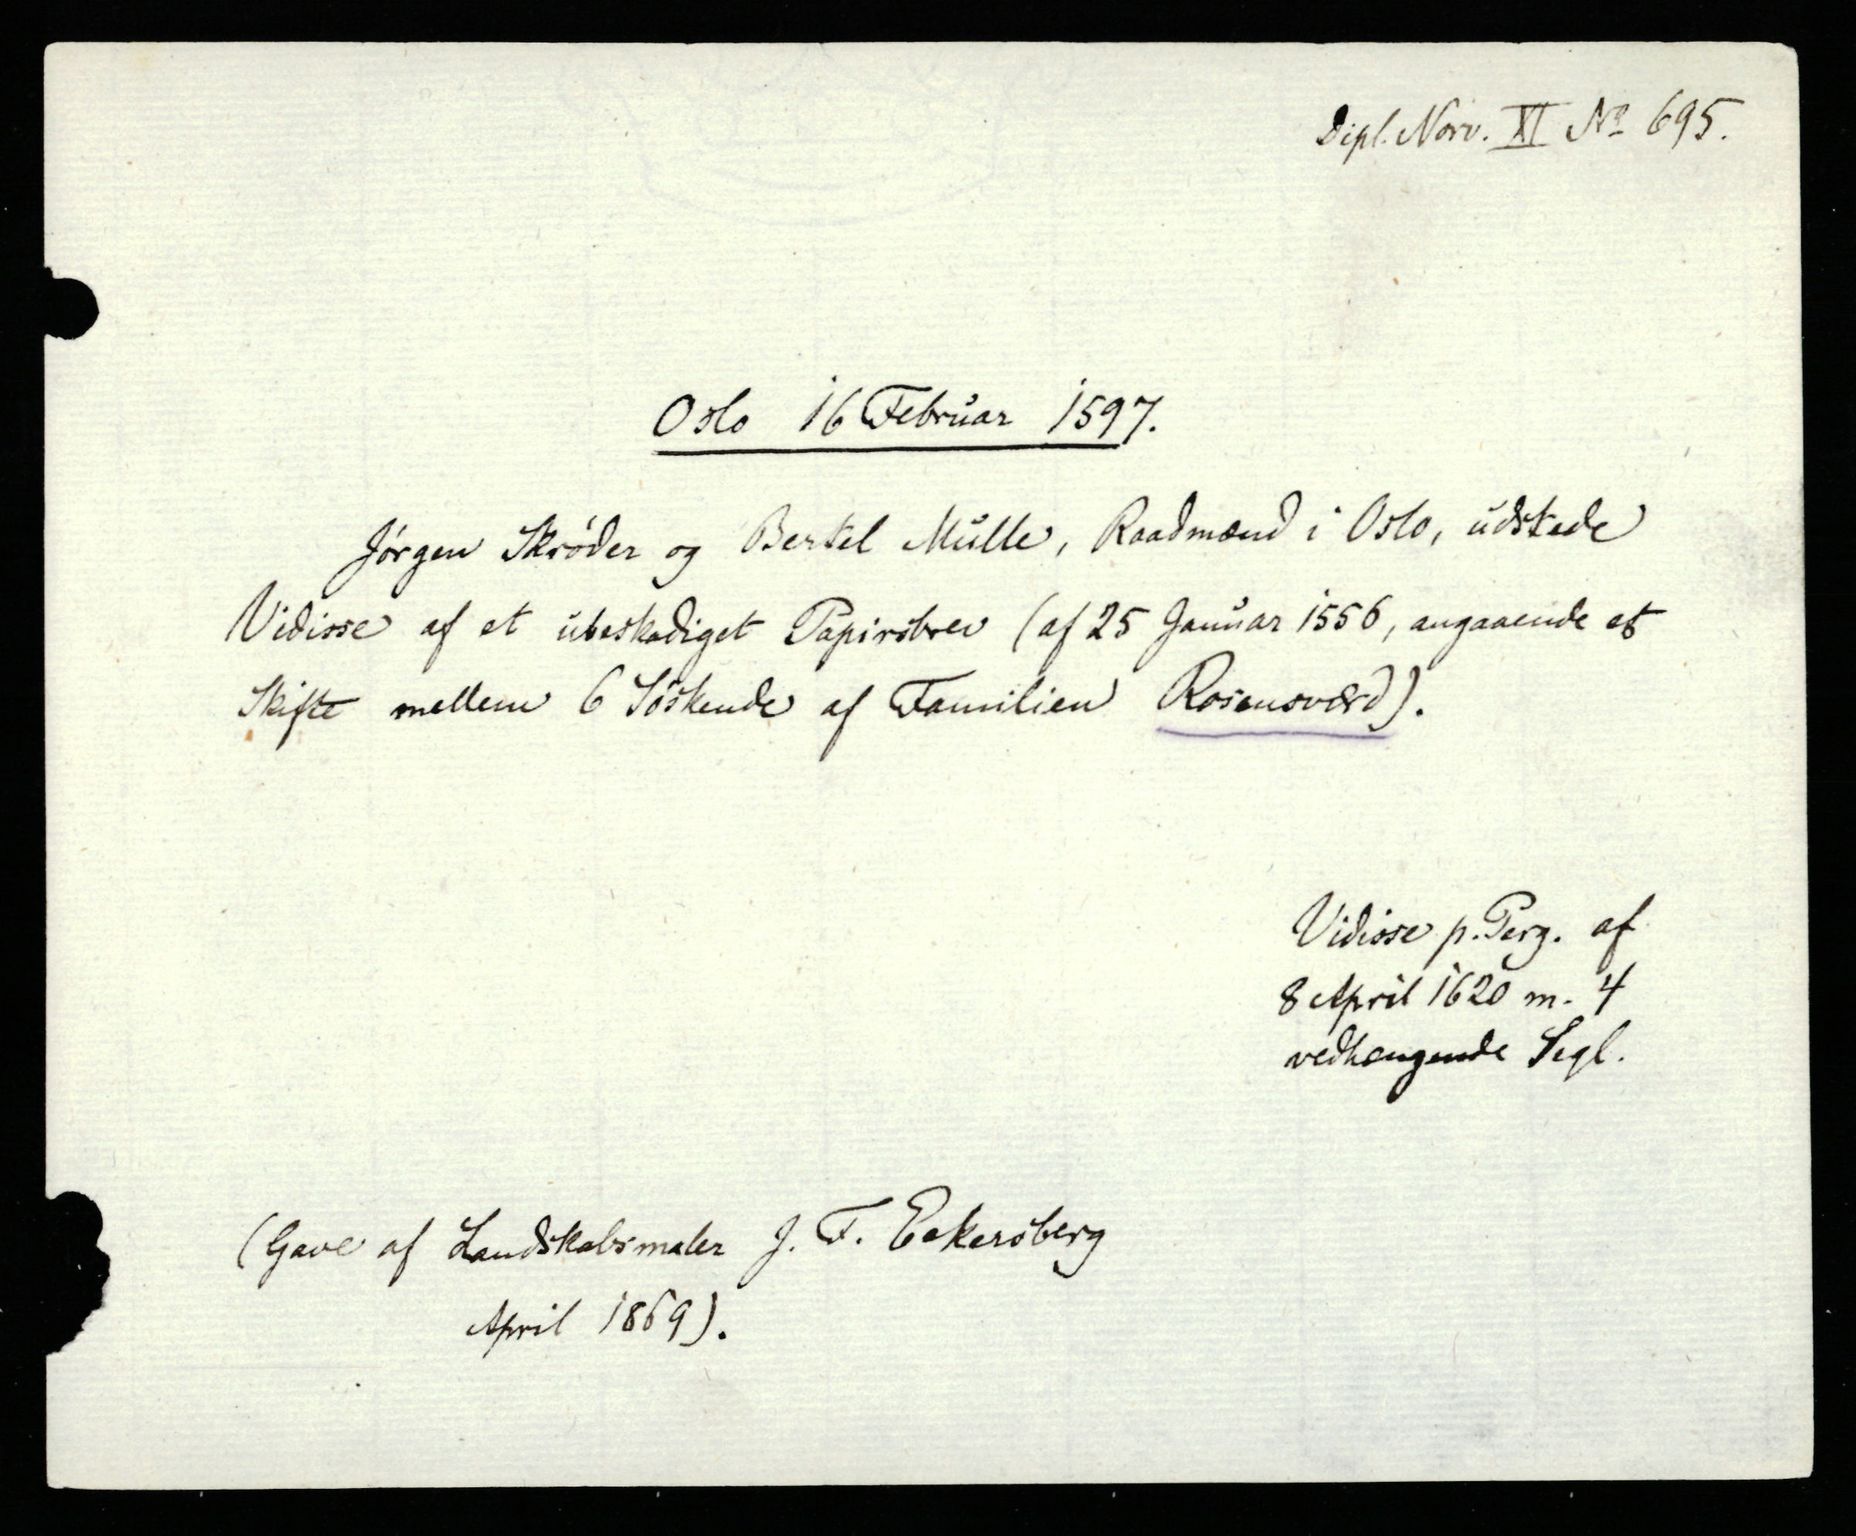 Dipl. Norv. XI No 695.
Oslo 16 Februar 1597.
Jörgen Skröder og Bertel Mulle, Raadmænd i Oslo, udstede
Vidisse af et ubeskadiget Papirsbrev (af 25 Januar 1556, angaaende et
Skifte mellem 6 Söskende af Familien Rosensværd).
Vidisse p. Perg. af
8 April 1620 m. 4
vedhængende Segl.
(Gave af Landskabsmaler J. F. Eckersberg
April 1869).